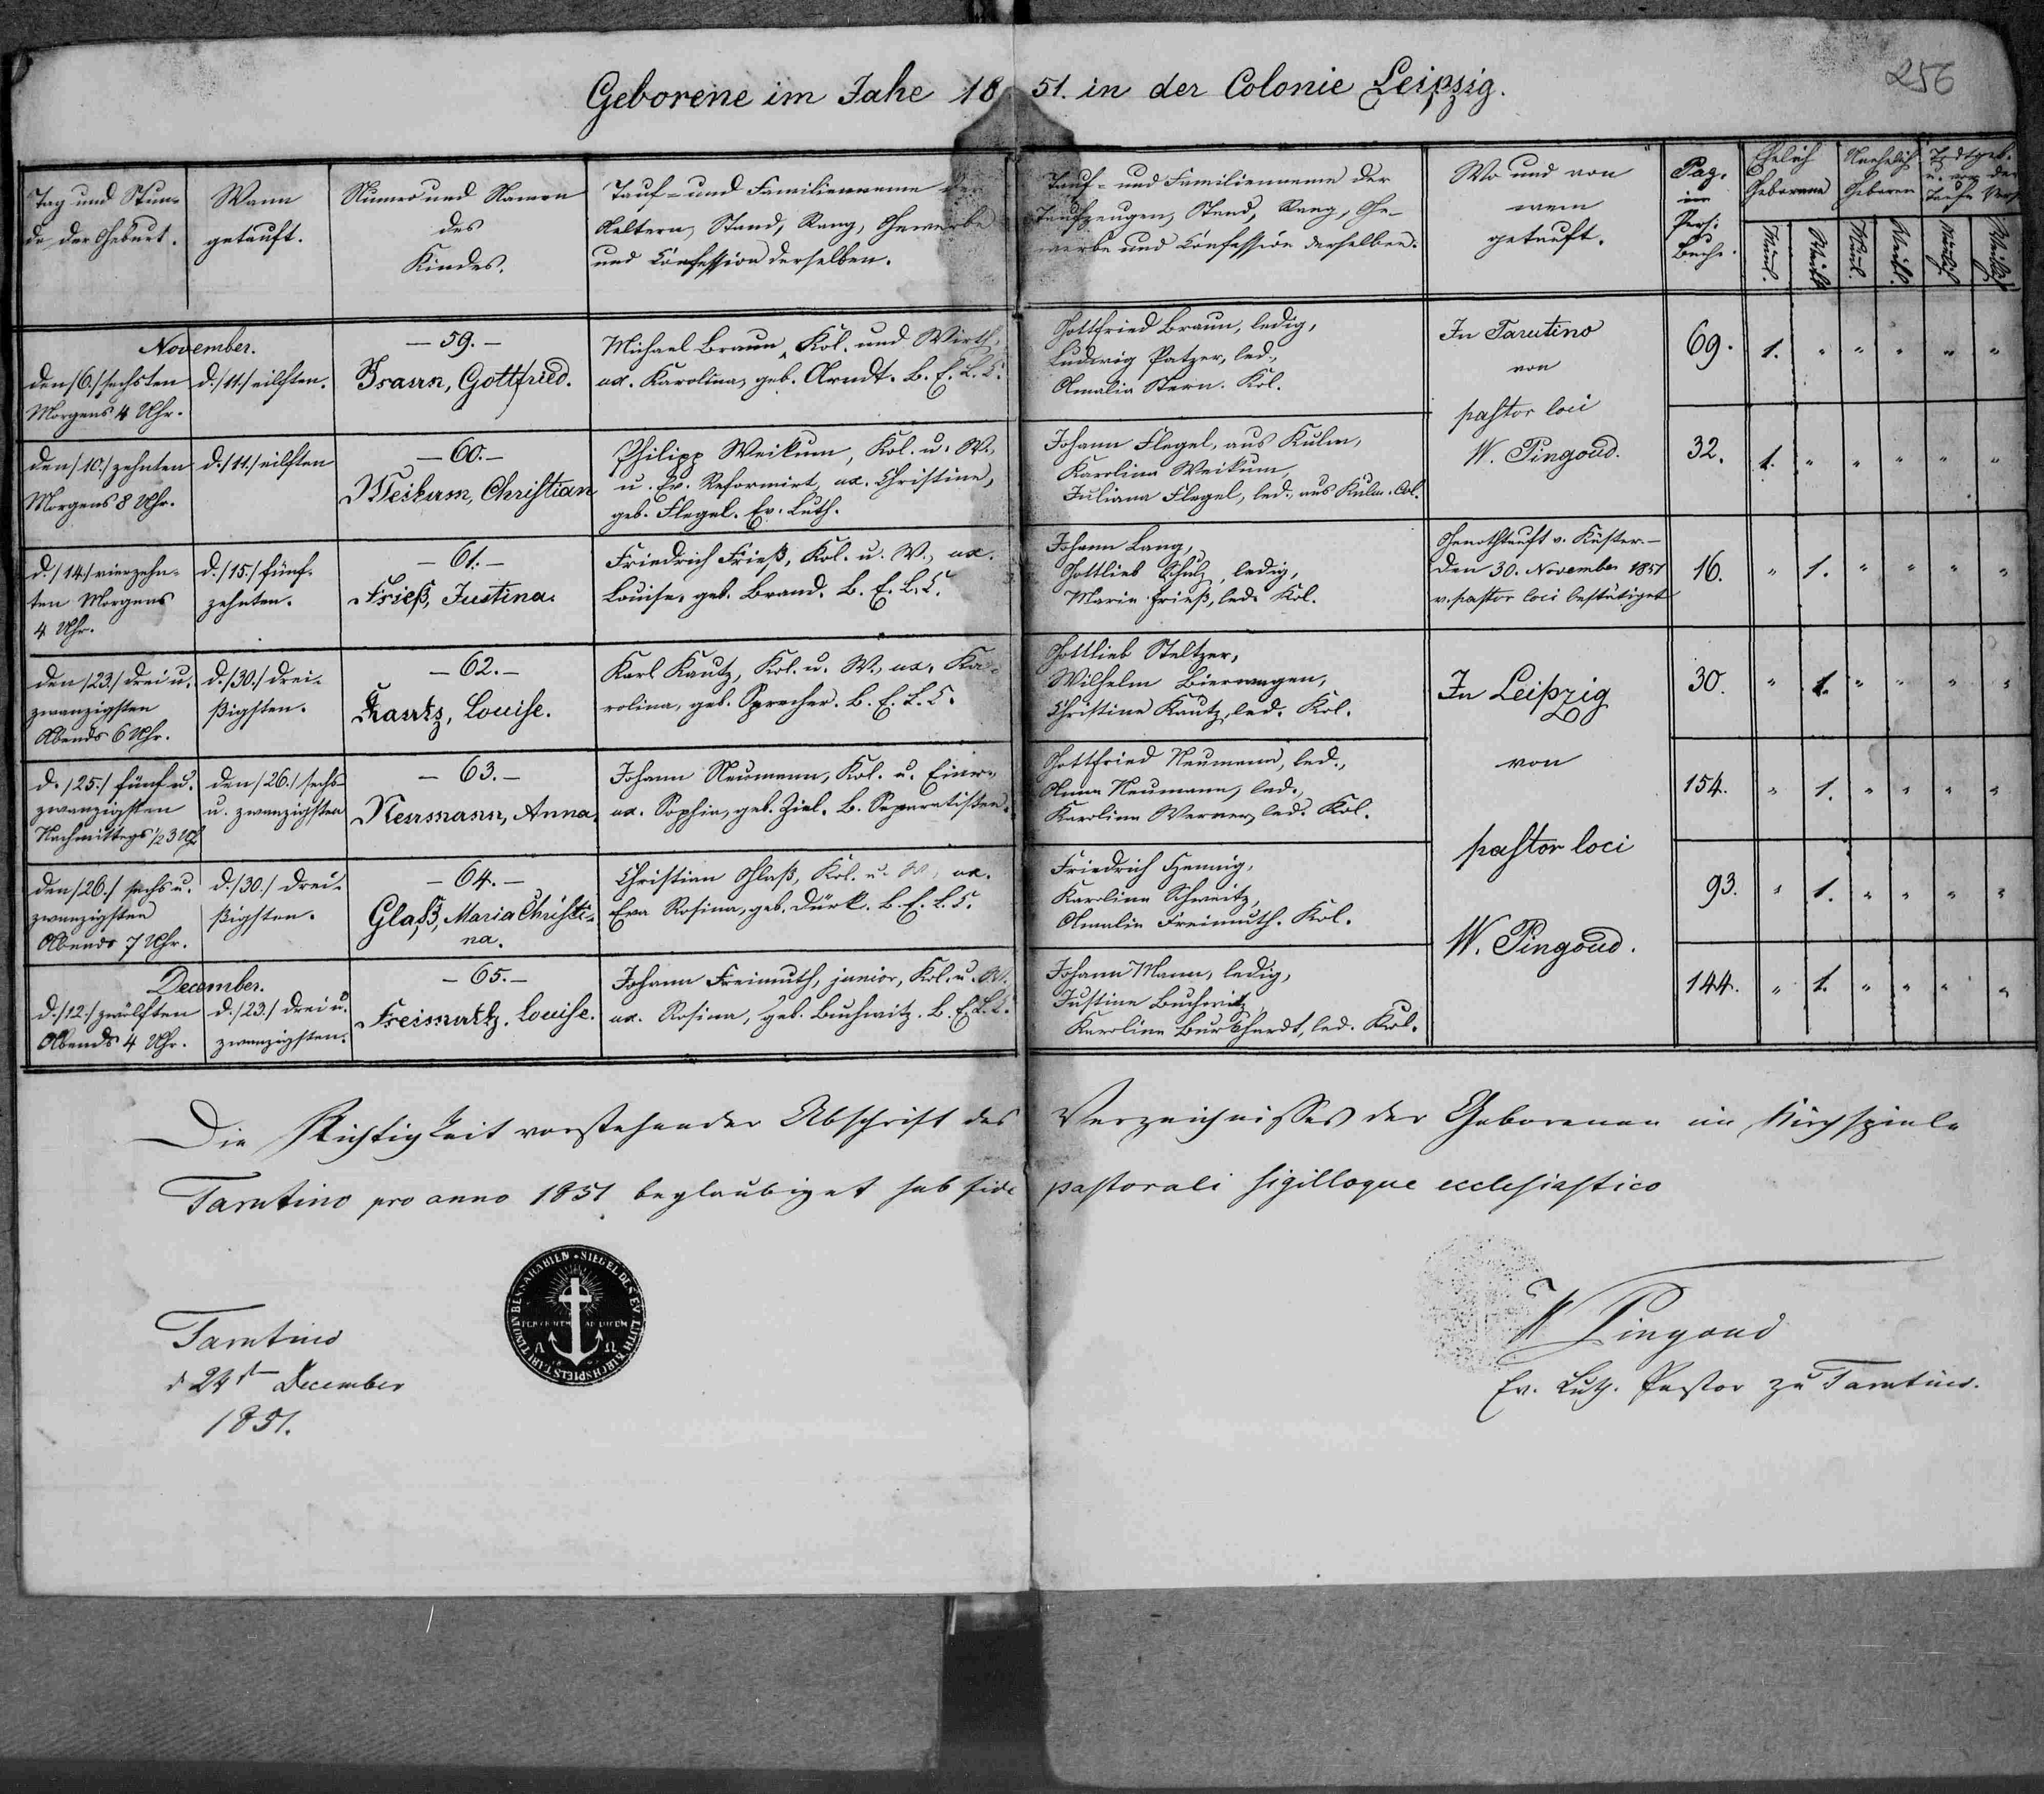 256
Geborene im Jahe 1851. in der Colonie Leipzig.
Tag und Stun-
de der Geburt.
Wann
getauft.
Numro und Namen
des
Kindes.
Tauf- und Familienname der
Aeltern, Stand, Rang, Gewerbe
und Confession derselben.
Tauf- und Familienname der
Taufzeugen, Stand, Rang, Ge-
werbe und Confession derselben.
Wo und von
wem
getauft.
Pag.
im
Pers.
Buche.
Ehelich
Geborene
Unehelich
Geboren
Todtgeb.
u. vor der
Taufe Verst
Männl.
Weibl.
Männl.
Weibl.
Männlich
Weiblich
November.
den /6./ sechsten
Morgens 4 Uhr.
d. /11./ eilften.
- 59. -
Braun, Gottfried.
Michael Braun, Kol. und Wirth,
ux. Karolina, geb. Arndt. B. E. L. C.
Gottfried Braun, ledig,
Ludwig Patzer, led.,
Amalia Stern. Kol.
In Tarutino
von
pastor loci
W. Pingoud.
69. 1. " " " " "
den /10./ zehnten
Morgens 8 Uhr.
d. /11./ eilften
- 60. -
Weikum, Christian
Philipp Weikum, Kol. u. W.,
u. Ev. Reformirt, ux. Christine,
geb. Flegel. Ev. Luth.
Johann Flegel, aus Kulm,
Karolina Weikum,
Juliana Flegel, led., aus Kulm. Col.
32. 1. " " " " "
d. /14./ vierzehn-
ten Morgens
4 Uhr.
d. /15./ fünf-
zehnten.
- 61. -
Frieß, Justina.
Friedrich Frieß, Kol. u. W., ux.
Louise, geb. Brand. B. E. L. C.
Johann Lang,
Gottlieb Schulz, ledig,
Maria Frieß, led. Kol.
Genothtauft v. Küster. -
Den 30. November 1851
v. pastor loci bestätiget
16. " 1. " " " "
den /23./ drei u.
zwanzigsten
Abends 6 Uhr.
d. /30./ drei-
ßigsten.
- 62. -
Kautz, Louise.
Karl Kautz, Kol. u. W., ux. Ka-
rolina, geb. Sprecher. B. E. L. C.
Gottlieb Steltzer,
Wilhelm Bierwagen,
Christine Kautz, led. Kol.
In Leipzig
von
pastor loci
W. Pingoud.
30. " 1. " " " "
d. /25./ fünf u.
zwanzigsten
Nachmittags ½ 3 Uhr
den /26./ sechs
u. zwanzigsten
- 63. -
Neumann, Anna.
Johann Neumann, Kol. u. Einw.,
ux. Sophia, geb. Ziel. B. Separatisten.
Gottfried Neumann, led.,
Anna Neumann, led.,
Karolina Werner, led. Kol.
154. " 1. " " " "
den /26./ sechs u.
zwanzigsten
Abends 7 Uhr.
d. /30./ drei-
ßigsten.
- 64. -
Glaß, Maria Christi-
na.
Christian Glaß, Kol. u. W., ux.
Eva Rosina, geb. Dürk. B. E. L. C.
Friedrich Hennig,
Karolina Schweitz,
Amalia Freimuth. Kol.
93. " 1. " " " "
December.
d. /12./ zwölften
Abends 4 Uhr.
d. /23./ drei u.
zwanzigsten.
- 65. -
Freimuth, Louise.
Johann Freimuth, junior, Kol. u. W.
ux. Rosina, geb. Buchwitz. B. E. L. C.
Johann Mann, ledig,
Justine Buchwitz,
Karolina Burkhardt, led. Kol.
144. " 1. " " " "
Die Richtigkeit vorstehender Abschrift des Verzeichnisses der Geborenen im Kirchspiele
Tarutino pro anno 1851 beglaubiget sub fide pastorali sigilloque ecclesiastico
Tarutino
d 24t December
1851.
SIEGEL DES EV. LUTH. KIRCHSPIELS TARUTINO IN BESSARABIEN
A Ω
W Pingoud
Ev. Luth. Pastor zu Tarutino.